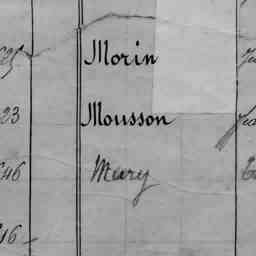 Morin
23 Mousson
46 Mury
16